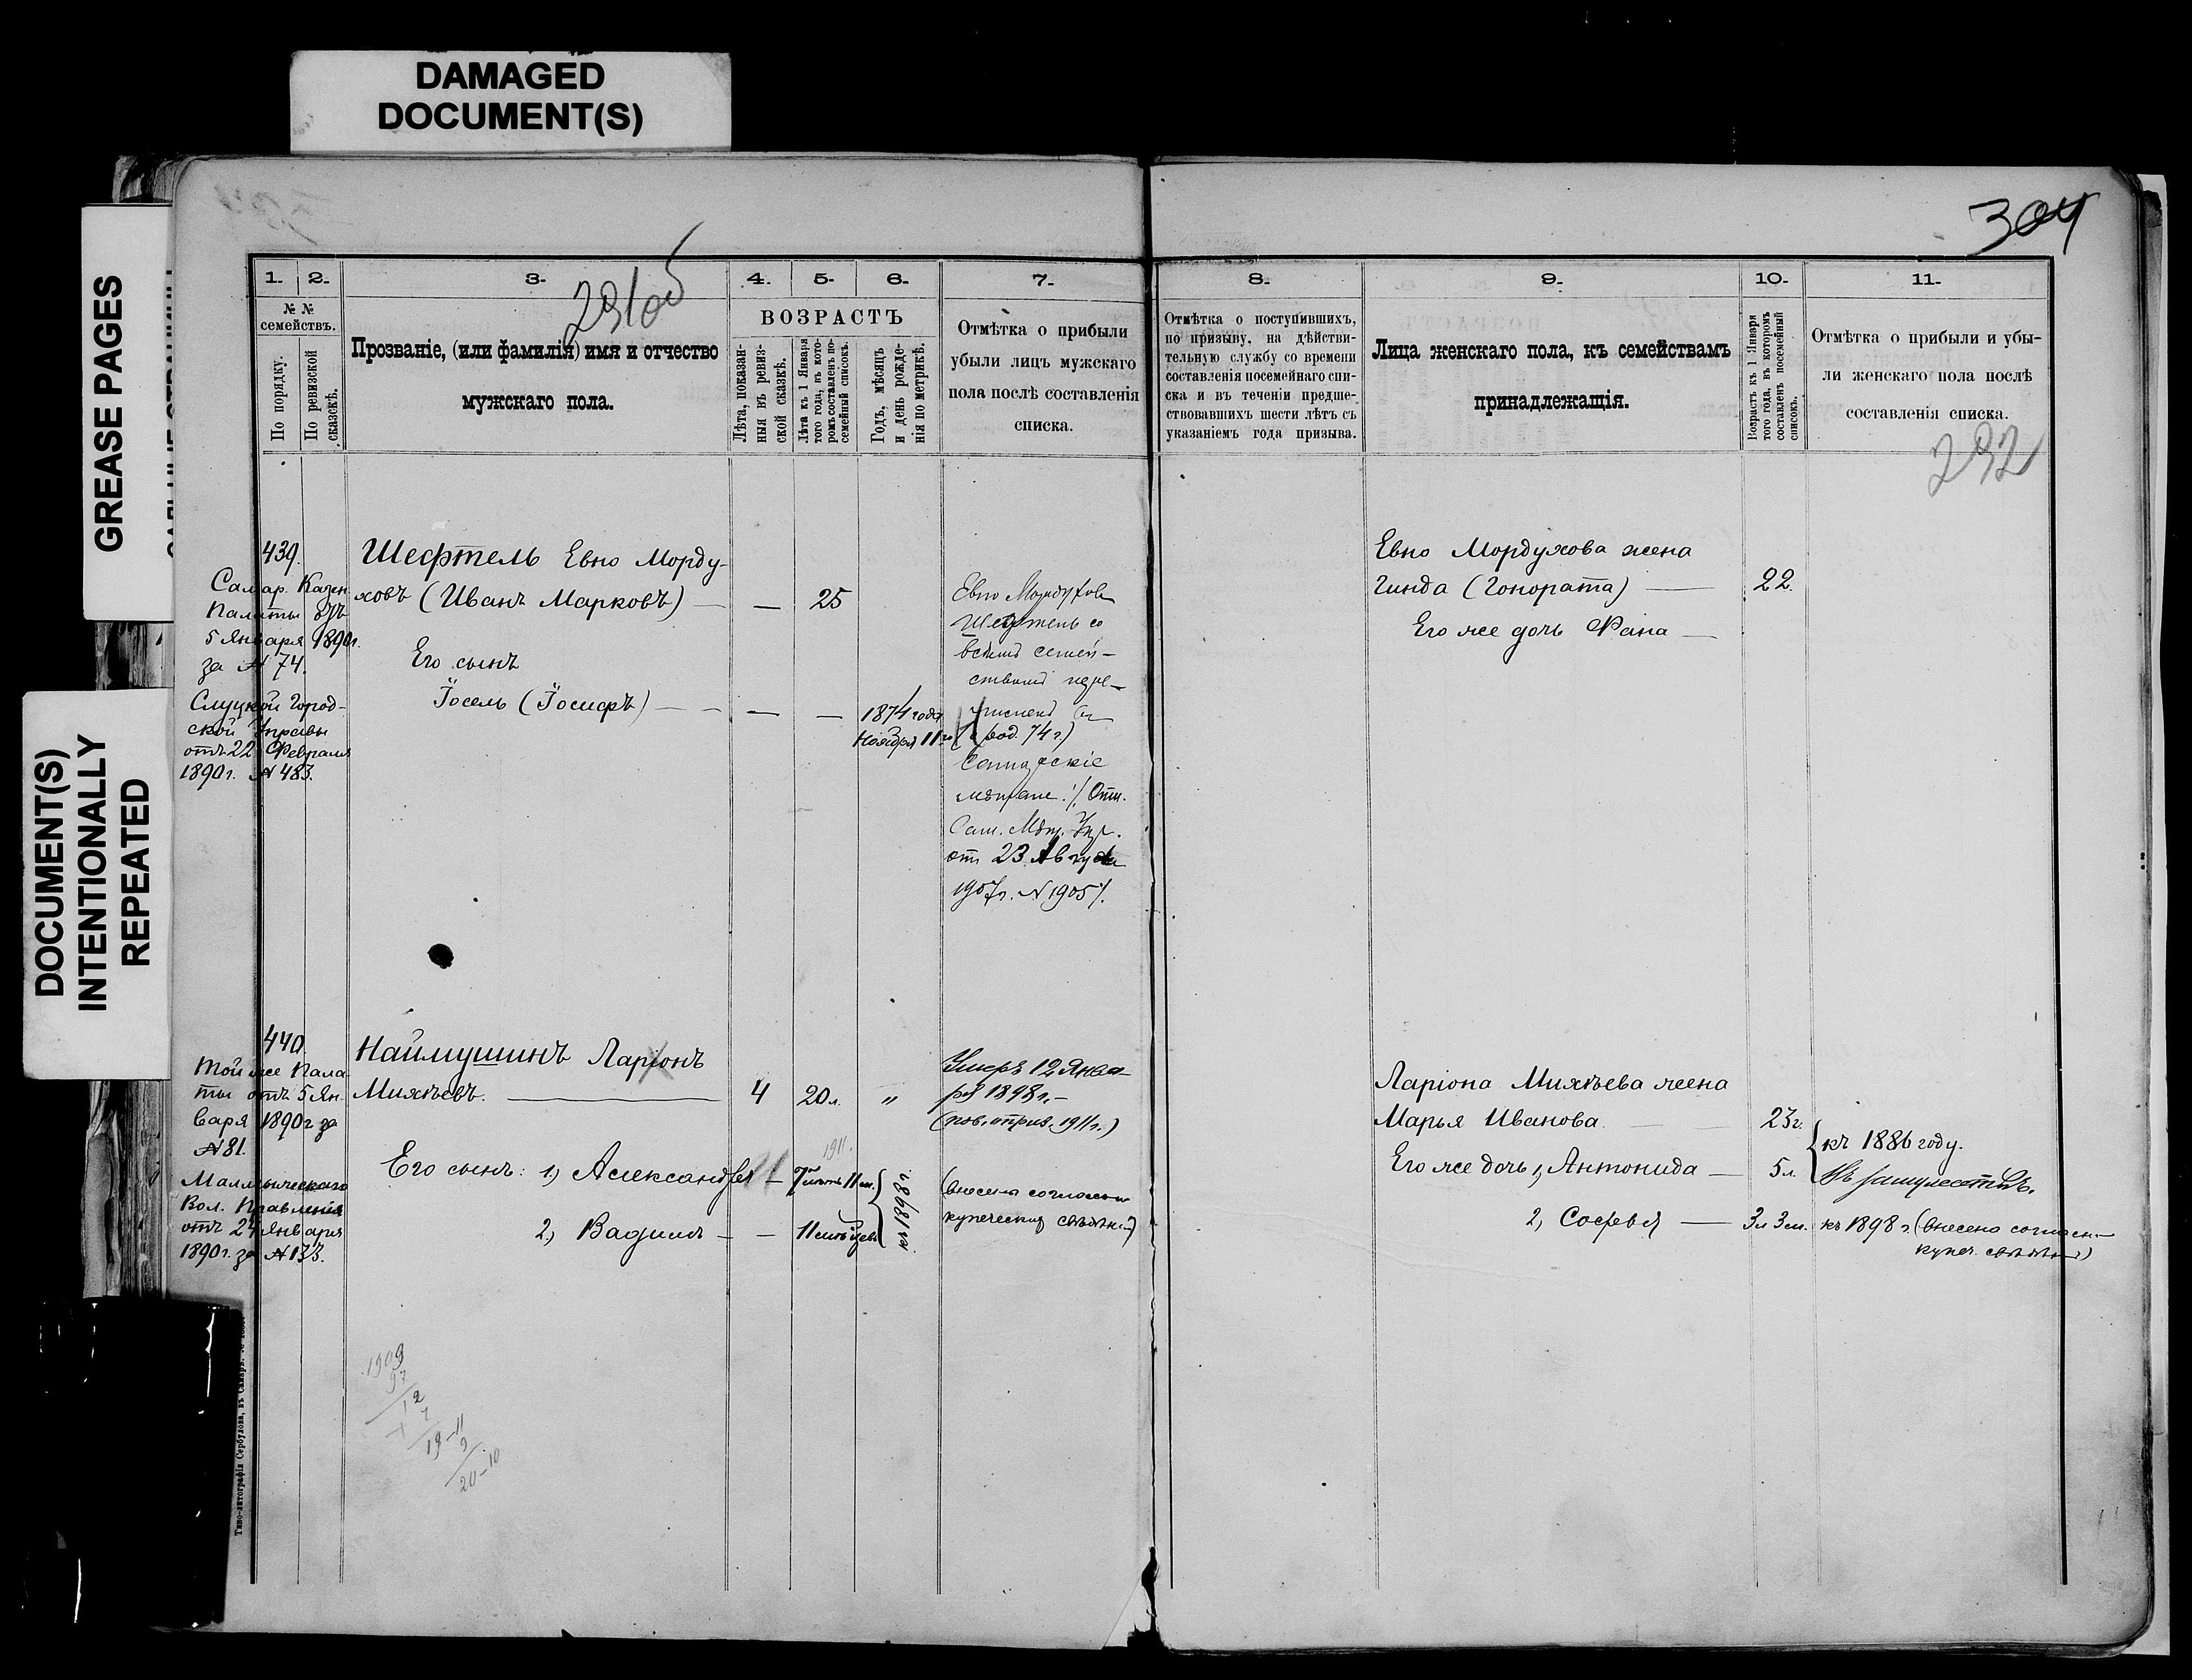 DAMAGED
DOCUMENT(S)
GREASE PAGES
DOCUMENT(S)
INTENTIONALLY
REPEATED
304
291об
292
1.
2.
3.
4.
5.
6.
7.
№ №
семействъ.
По порядку.
По ревизской
сказкѣ.
Прозваніе, (или фамилія) имя и отчество
мужскаго пола.
ВОЗРАСТЪ
Лѣта, показан-
ныя въ ревиз-
ской сказкѣ.
Лѣта къ 1 Января
того года, въ кото-
ромъ составленъ по-
семейный списокъ.
Годъ, мѣсяцъ
и день рожде-
нія по метрикѣ.
Отмѣтка о прибыли
убыли лицъ мужскаго
пола послѣ составленія
списка.
8.
9.
10.
11.
Отмѣтка о поступившихъ,
по призыву, на дѣйстви-
тельную службу со времени
составленія посемейнаго спи-
ска и въ теченіи предше-
ствовавшихъ шести лѣтъ съ
указаніемъ года призыва.
Лица женскаго пола, къ семействамъ
принадлежащія.
Возрастъ къ 1 Января
того года, въ которомъ
составленъ посемейный
списокъ.
Отмѣтка о прибыли и убы-
ли женскаго пола послѣ
составленія списка.
439.
Самар. Казен.
Палаты отъ
5 Января 1890г.
за № 74.
Слуцкой Город-
ской Управы
отъ 22 Февраля
1890г. № 483.
Шефтель Евно Морду-
ховъ (Иванъ Марковъ) — — 25
Его сынъ
Іосель (Іосифъ) — — — —
1874 года
Ноября 11го
Евно Мордухов
Шефтель со
всѣмъ семей-
ствомъ пере-
численъ въ
(род. 74 г.)
Самарскіе
мѣщане. /. Отн.
Сам. Мѣщ. Упр.
отъ 23 Августа
1907г. № 1905/.
Евно Мордухова жена
Гинда (Гонората) — 22.
Его же дочь Фана —
440.
Той же Пала-
ты отъ 5 Ян-
варя 1890г за
№ 81.
Малмыжскаго
Вол. Правленія
отъ 24 Января
1890г. за № 133.
Наймушинъ Ларіонъ
Михѣевъ. — 4 20л. „
Умеръ 12 Янва-
ря 1898г.-
1911.
Его сынъ: 1) Александръ — 7 лѣтъ 11 м.
2) Вадимъ — — 11 мѣсяцевъ
къ 1898г.
(внесены согласно
купеческих свѣдѣній)
Ларіона Михѣева жена
Марья Иванова. — 23г.
Его же дочь 1, Антонида — 5л.
къ 1886 году.
Въ замужествѣ.
2, Софья — 3л 3м. къ 1898 г. (внесено согласн.
купеч. свѣдѣн.)
1909
97
12
7
19-11
9
20-10
Типо-литографія Сербулова, въ Самарѣ.